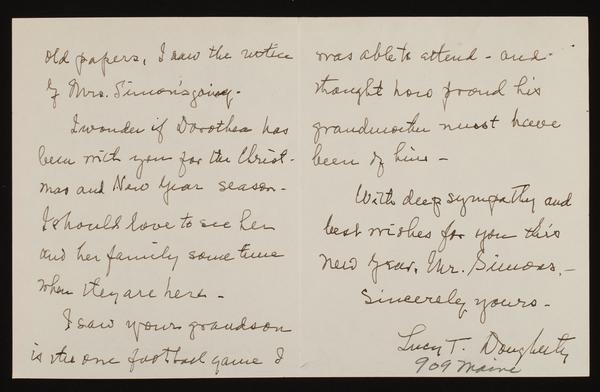 old papers, I saw the notice
of Mrs. Simons going.
I wonder if Dorothea has
been with you for the Christ-
mas and New Year season -
I should love to see her
and her family some time
when they are here -
I saw your grandson
is the one football game I
was able to attend - and -
thought how proud his
grandmother must have
been of him -
With deep sympathy and
best wishes for you this
New Year, Mr. Simons, -
Sincerely yours -
Lucy T. Dougherty
909 Maine